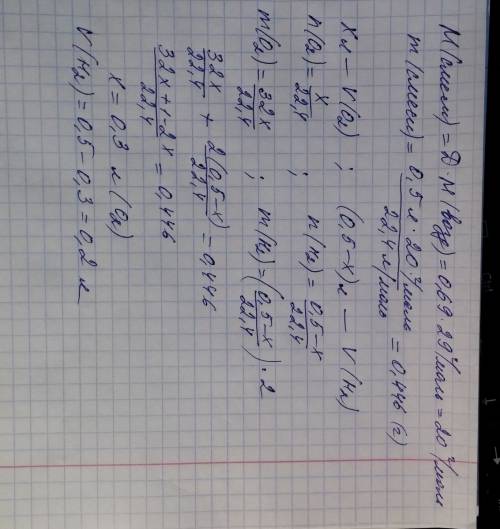 M(смеси) = D·M(возд) = 0,69·29 г/моль = 20 г/моль
m(смеси) = 0,5 л · 20 г/моль / 22,4 л/моль = 0,446 (г)
Xл – V(O₂) ; (0,5-x)л – V(H₂)
n(O₂) = x/22,4 ; n(H₂) = 0,5-x/22,4
m(O₂) = 32x/22,4 ; m(H₂) = (0,5-x/22,4)·2
32x/22,4 + 2(0,5-x)/22,4 = 0,446
32x+1-2x/22,4 = 0,446
x = 0,3 л (O₂)
V(H₂) = 0,5-0,3 = 0,2 л